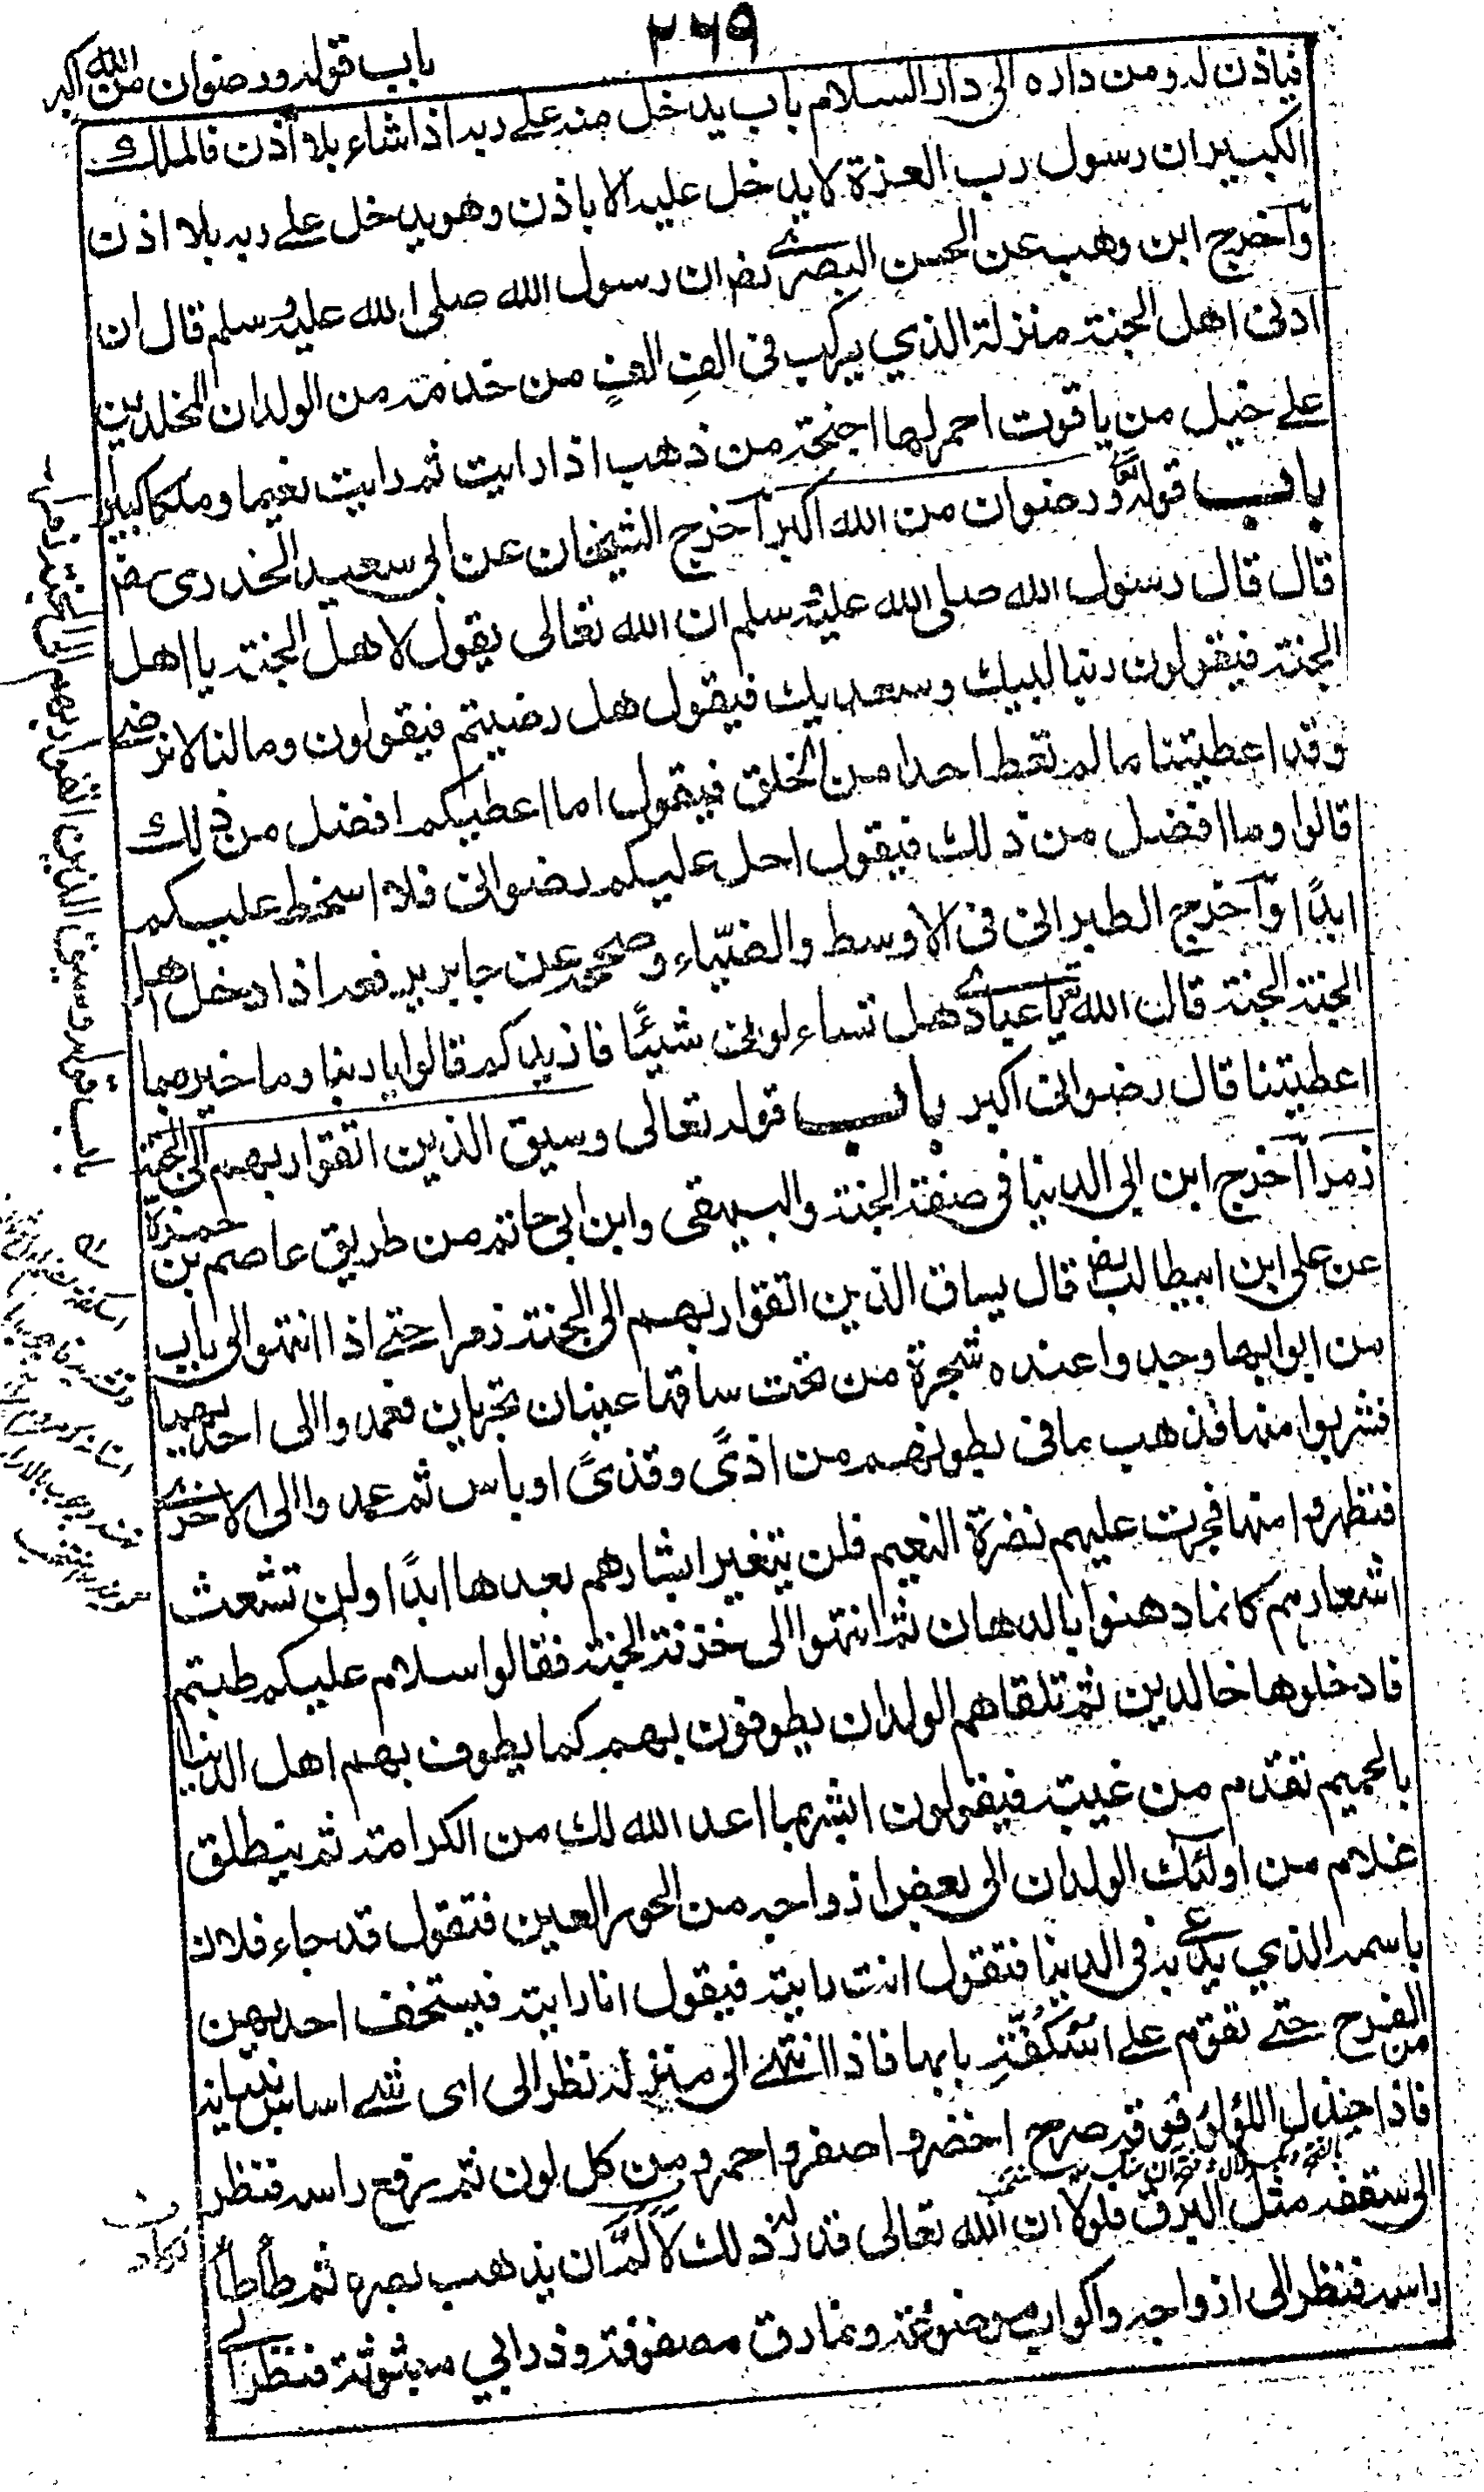 ٢٦٩
باب قوله ورضوان من الله اكبر
فياذن له ومن داره الى دار السلام باب يدخل منه على ربه اذا شاء بلا اذن فالملك
الكبير ان رسول رب العزة لا يدخل عليه الا باذن وهو يدخل على ربه بلا اذن
وآخرج ابن وهب عن الحسن البصرى رض ان رسول الله صلى الله عليه وسلم قال ان
ادنى اهل الجنة منزلة الذي يركب فى الف الف من خدمه من الولدان المخلدين
على خيل من ياقوت احمر لها اجنحة من ذهب اذا رايت ثم رايت نعيما وملكا كبيرا
باب قوله تعالى ورضوان من الله اكبر آخرج الشيخان عن ابى سعيد الخدرى رض
قال قال رسول الله صلى الله عليه وسلم ان الله تعالى يقول لاهل الجنة يا اهل
الجنة فيقولون ربنا لبيك وسعديك فيقول هل رضيتم فيقولون وما لنا لا نرضى
وقد اعطيتنا ما لم تعط احدا من الخلق فيقول اما اعطيكم افضل من ذلك
قالوا وما افضل من ذلك فيقول احل عليكم رضوانى فلا اسخط عليكم
ابدًا وآخرج الطبرانى فى الاوسط والضيّاء وصححه عن جابر يرفعه اذا دخل اهل
الجنة الجنة قال الله تعالى يا عبادى هل تساءلونى شيئًا فازيدكم قالوا يا ربنا وما خير مما
اعطيتنا قال رضوانى اكبر باب قوله تعالى وسيق الذين اتقوا ربهم الى الجنة
زمرا آخرج ابن ابى الدنيا فى صفة الجنة والبيهقى وابن ابى حاتم من طريق عاصم بن حمزة
عن على ابن ابيطالب رض قال يساق الذين اتقوا ربهم الى الجنة زمرا حتى اذا انتهوا الى باب
من ابوابها وجدوا عنده شجرة من تحت ساقها عينان تجريان فعمدوا الى احديهما
فشربوا منها فذهب ما فى بطونهم من اذىً وقذىً او باس ثم عمدوا الى الاخرى
فتطهروا منها فجرت عليهم نضرة النعيم فلن يتغير ابشارهم بعدها ابدًا ولن تشعث
اشعارهم كانما دهنوا بالدهان ثم انتهوا الى خزنة الجنة فقالوا سلام عليكم طبتم
فادخلوها خالدين ثم تلقاهم الولدان يطوفون بهم كما يطوف بهم اهل الدنيا
بالحميم تقدم من غيبته فيقولون ابشر بما اعد الله لك من الكرامة ثم ينطلق
غلام من اولئك الولدان الى بعض ازواجه من الحور العين فتقول قد جاء فلان
باسمه الذي يدعى به فى الدنيا فتقول انت رايته فيقول انا رايته فيستخف احديهن
الفرح حتى تقوم على اسكفة بابها فاذا انتهى الى منزله نظر الى اى شئ اساس بنيانه
من
فاذا جندل اللؤلؤ فوقه صرح اخضر واصفر واحمر ومن كل لون ثم يرفع راسه فنظر
الى سقفه مثل البرق فلولا ان الله تعالى قدر له ذلك لالمّ ان يذهب بصره ثم طأطأ
راسه فنظر الى ازواجه واكواب موضوعة ونمارق مصفوفة وزرابي مبثوثة فنظر الى
باب قوله وسيق الذين اتقوا ربهم الى الجنة زمرا